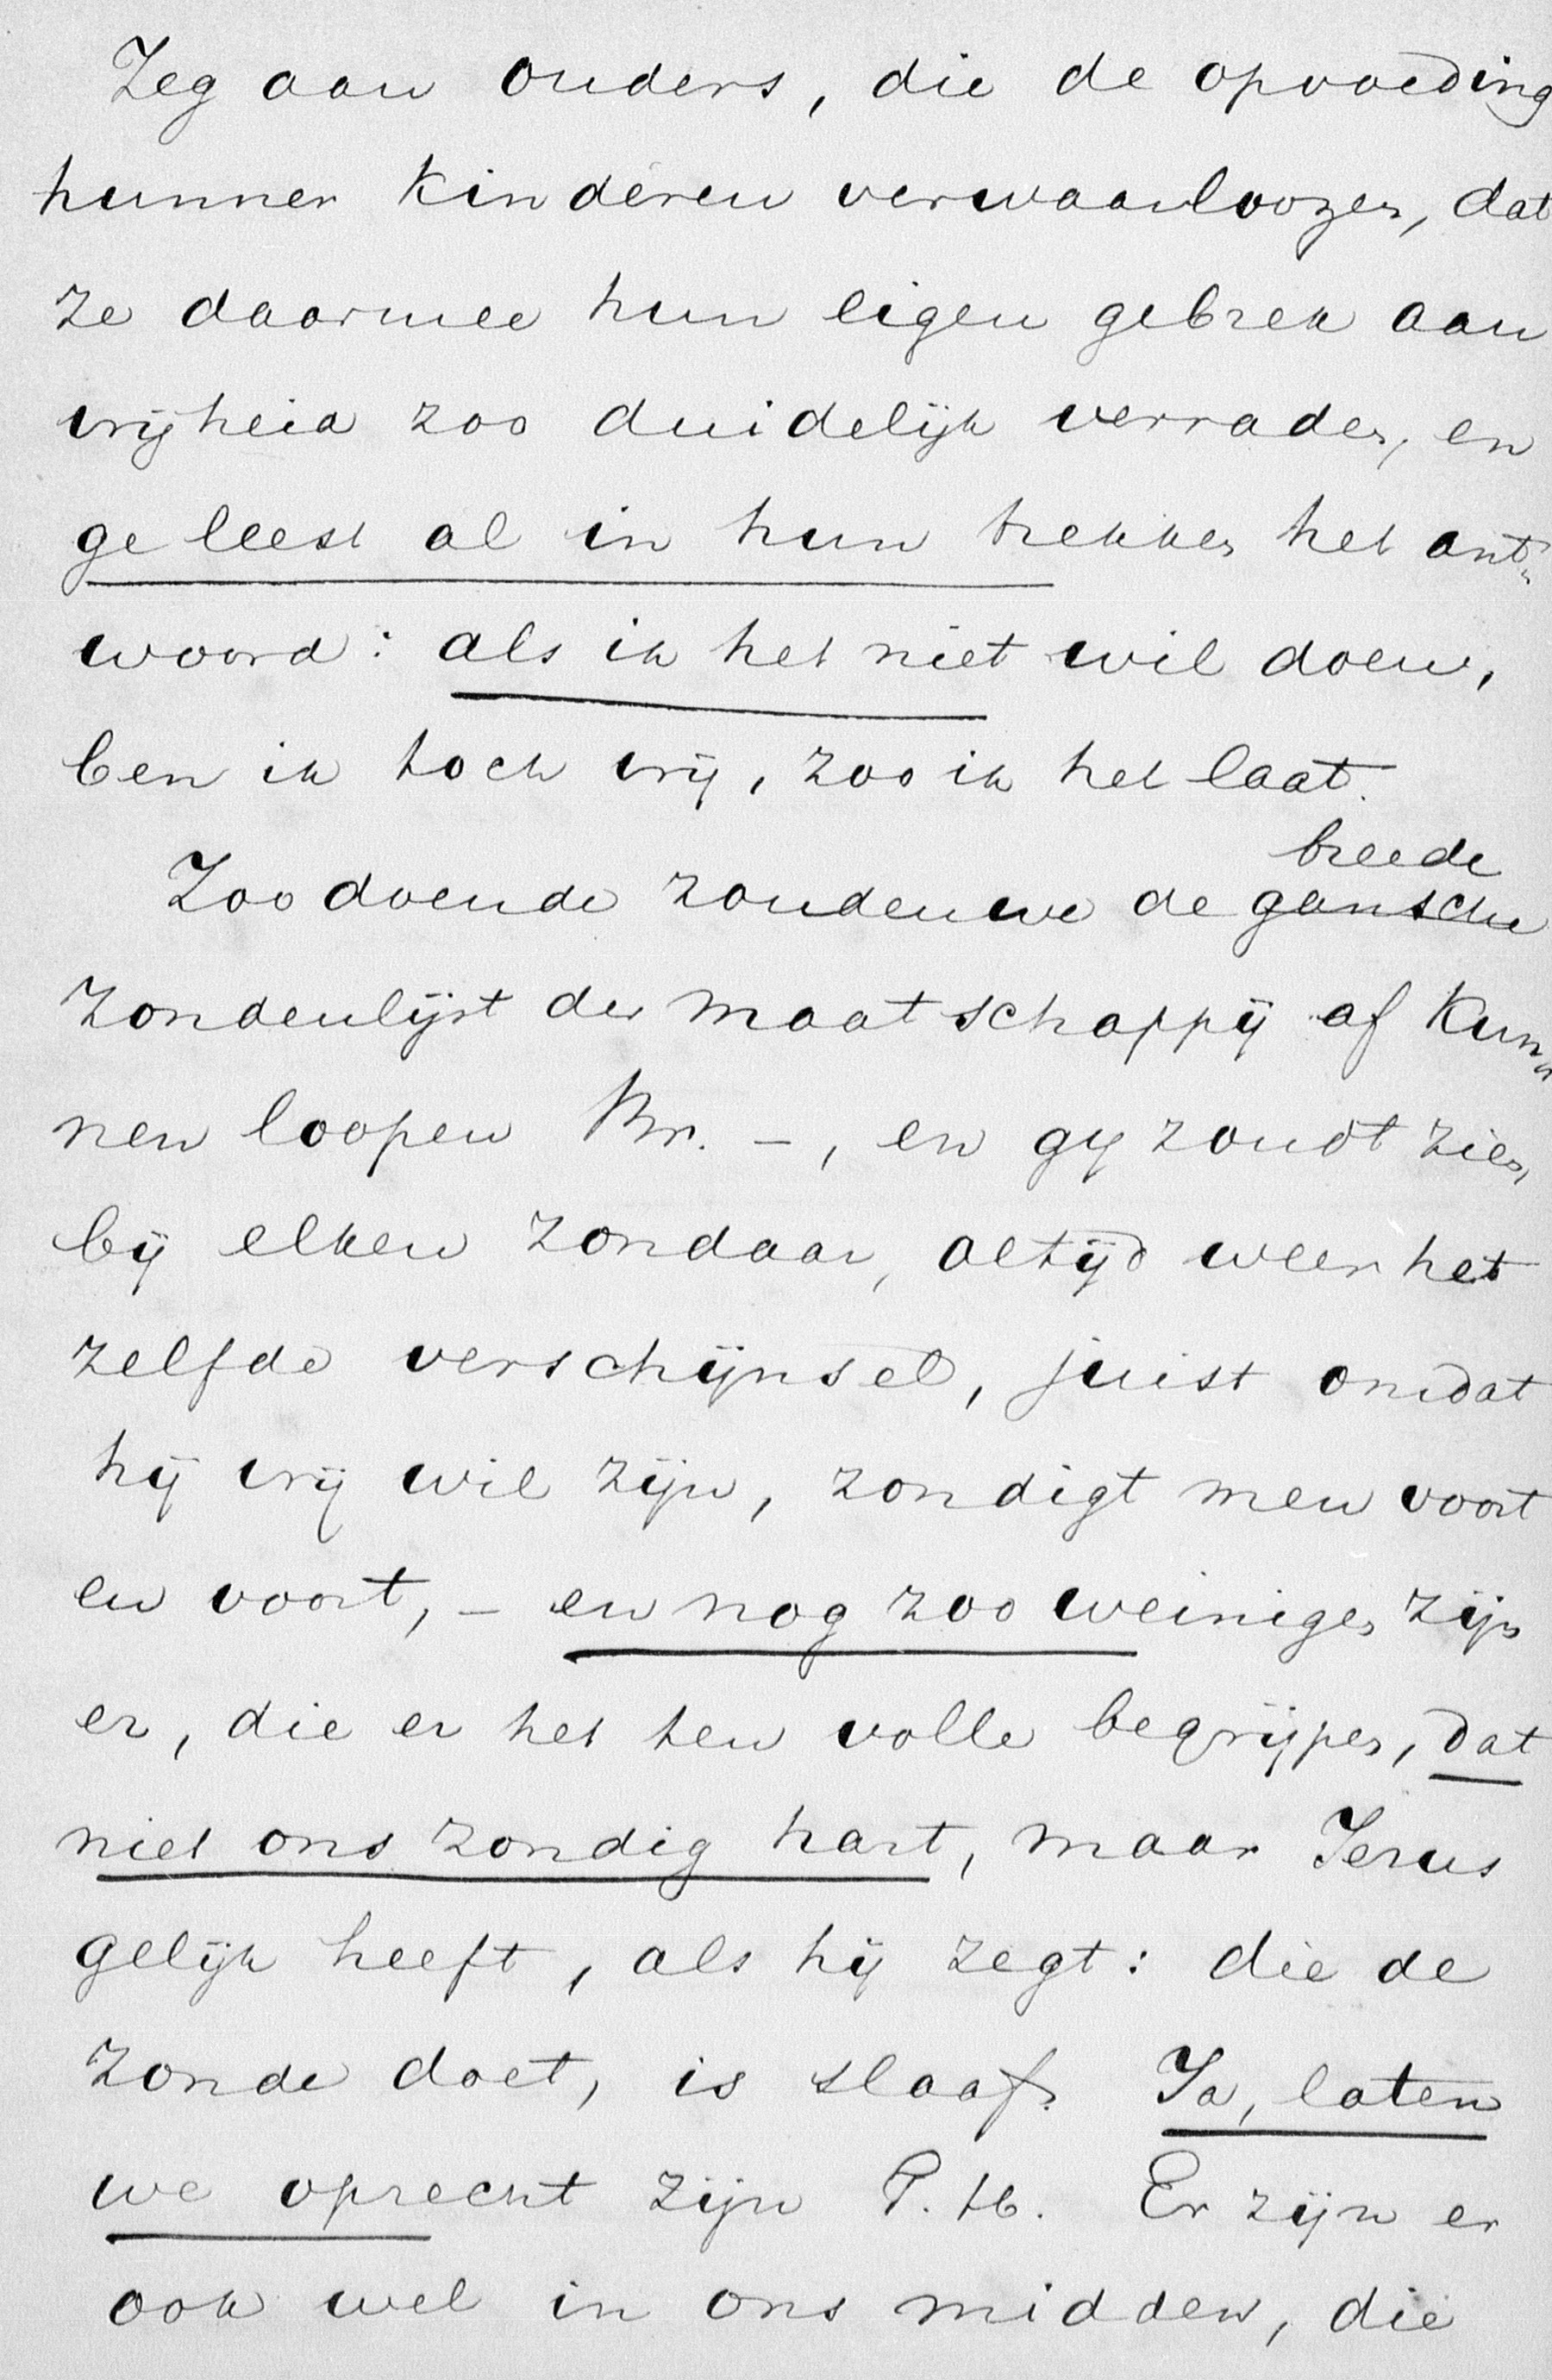 Zeg aan ouders, die de opvoeding
hunner kinderen verwaarloozen, dat
ze daarmee hun eigen gebrek aan
vrijheid zoo duidelijk verraden, en
ge leest al in hun trekken het ant„
woord: als ik het niet wil doen,
ben ik toch vrij, zoo ik het laat.
breede
Zoo doende zouden we de gansche
zondenlijst der maatschappij af kun„
nen loopen Br. –, en gij zoudt zien,
bij elken zondaar, altijd weer het
zelfde verschijnsel, juist omdat
hij vrij wil zijn, zondigt men voort
en voort, – en nog zoo weinigen zijn
er, die er het ten volle begrijpen, dat
niet ons zondig hart, maar Jezus
gelijk heeft, als hij zegt: die de
zonde doet, is slaaf. Ja, laten
we oprecht zijn G. H. Er zijn er
ook wel in ons midden, die